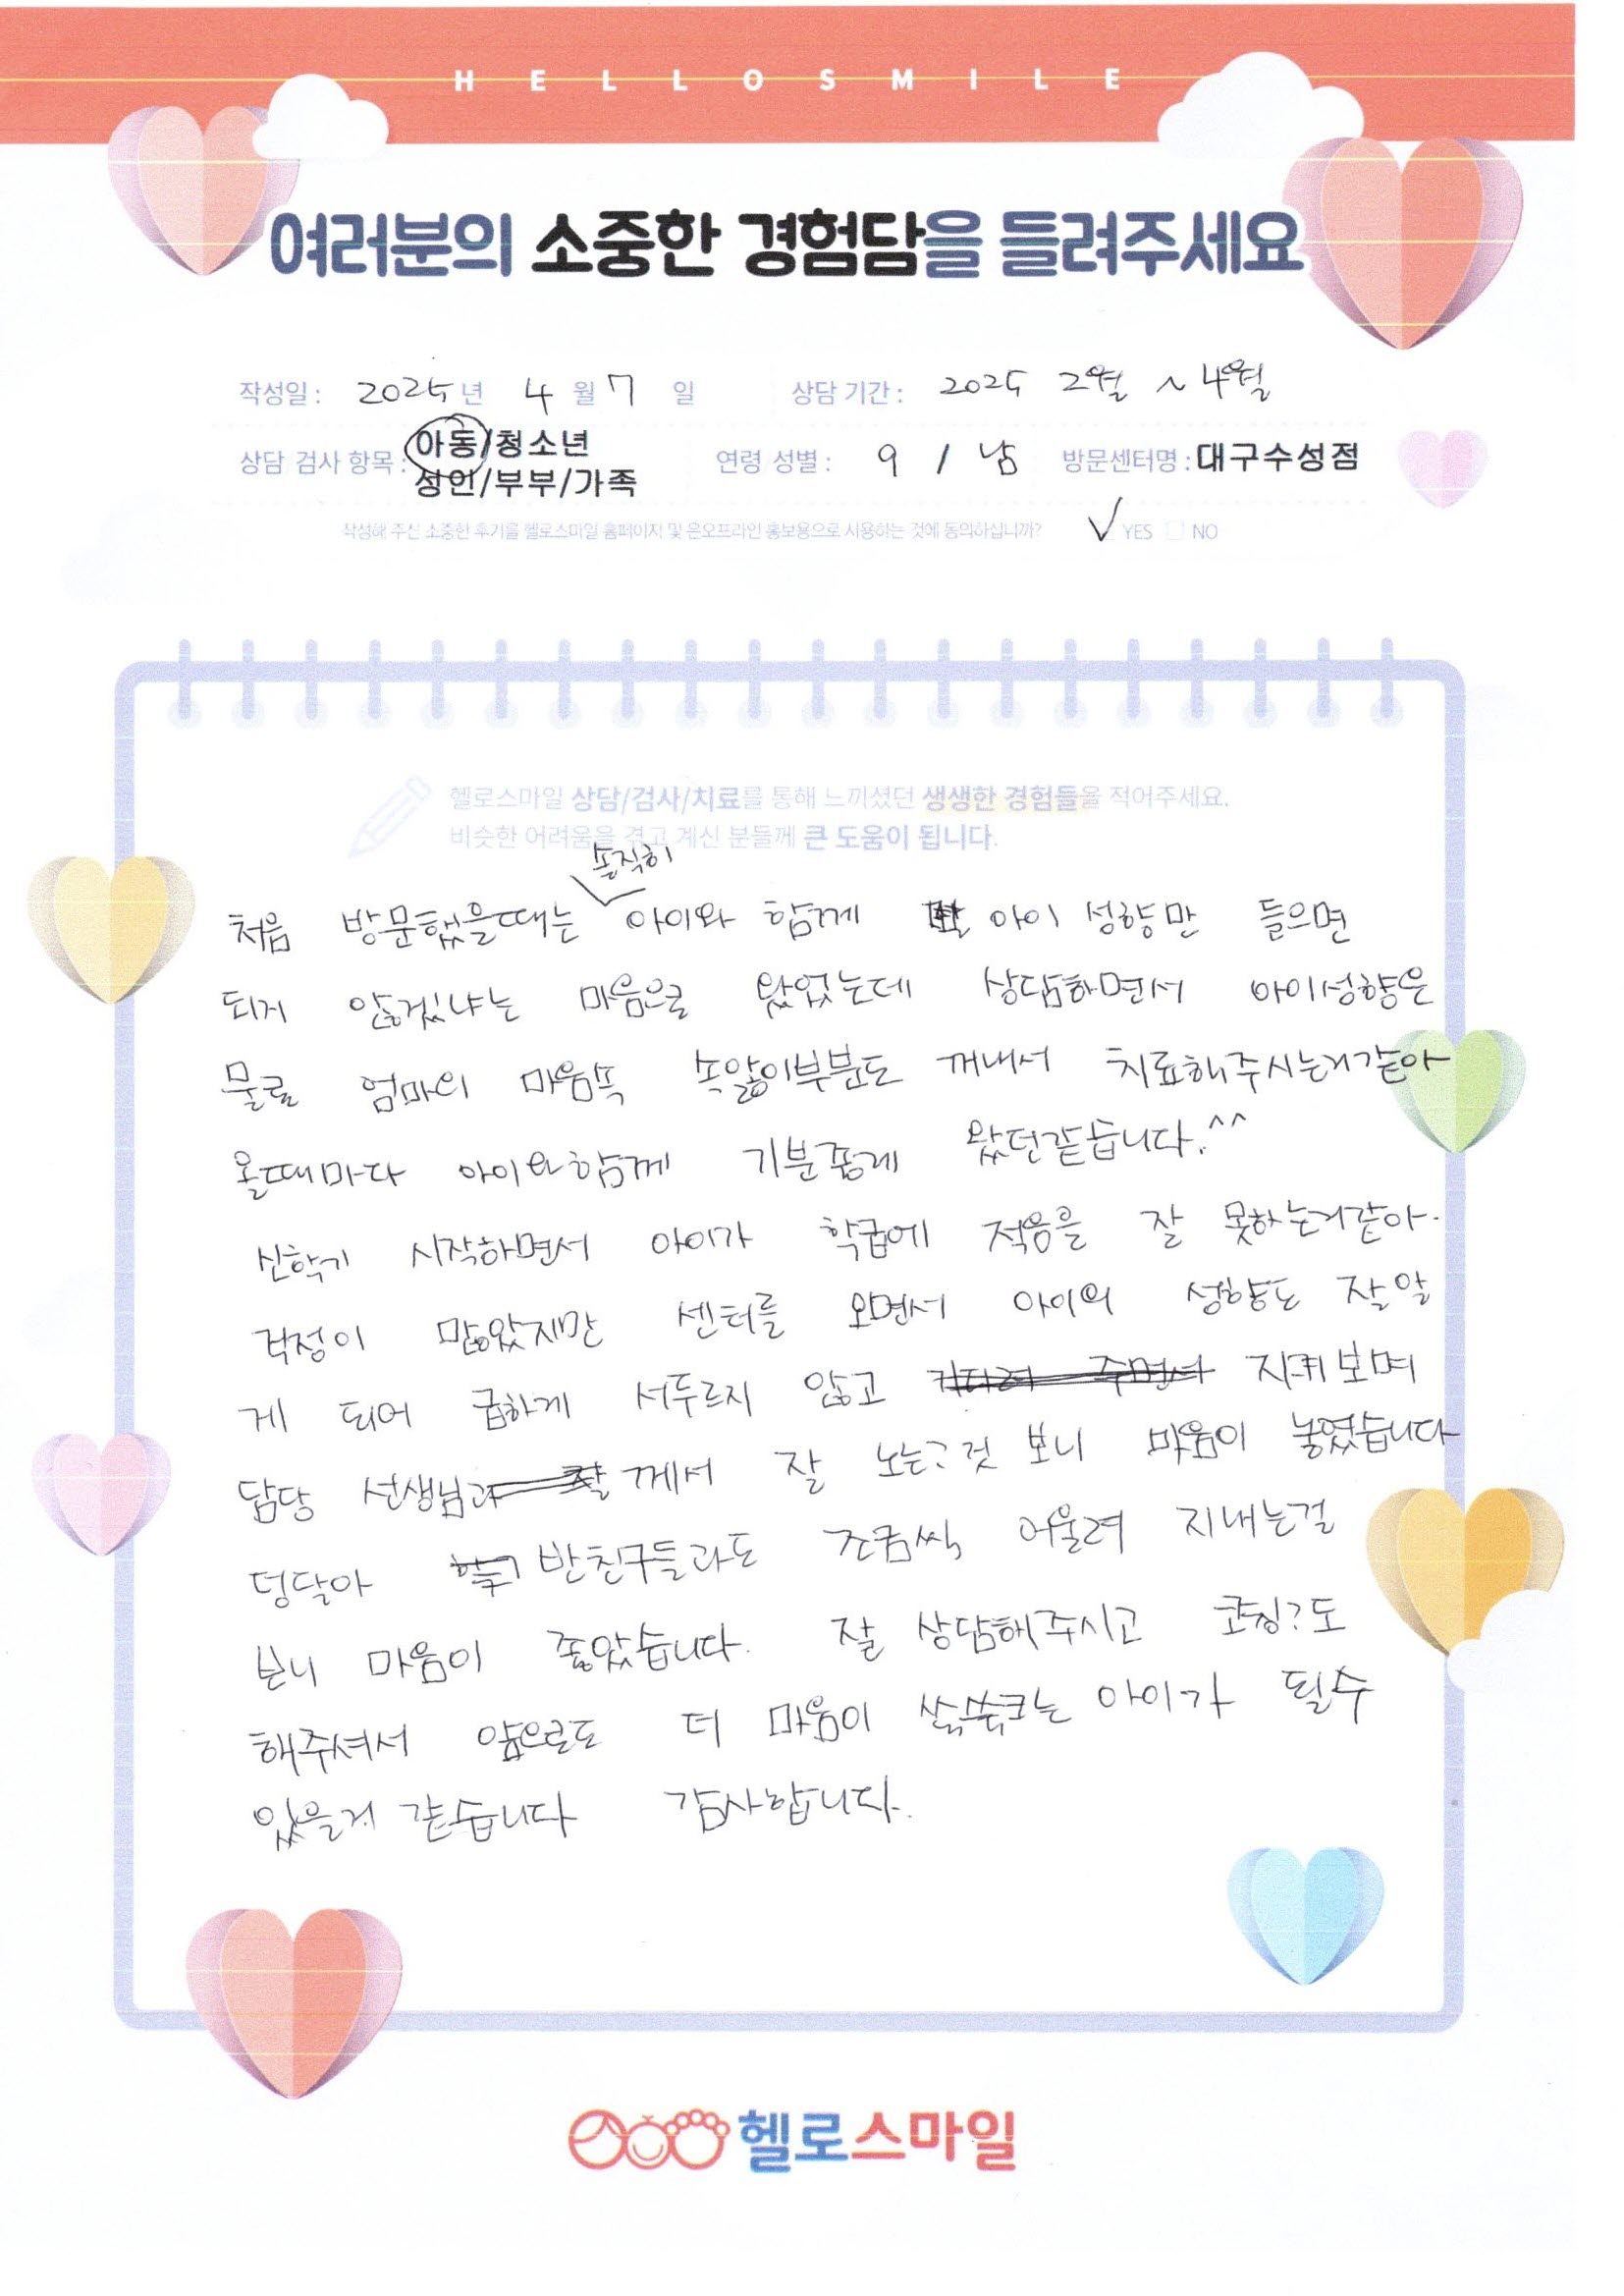 HELLOSMILE
여러분의 소중한 경험담을 들려주세요
작성일 : 2025년 4월 7일 상담 기간 : 2025 2월 ~ 4월
상담 검사 항목 : 아동/청소년 성인/부부/가족 연령 성별 : 9 / 남 방문센터명 : 대구수성점
작성해 주신 소중한 후기를 헬로스마일 홈페이지 및 온오프라인 홍보용으로 사용하는 것에 동의하십니까? ✓ YES NO
헬로스마일 상담/검사/치료를 통해 느끼셨던 생생한 경험들을 적어주세요.
비슷한 어려움을 겪고 계신 분들께 큰 도움이 됩니다.
처음 방문했을때는 솔직히 아이와 함께 아이 성향만 들으면
되지 않겠냐는 마음으로 왔었는데 상담하면서 아이성향은
물론 엄마의 마음속 속앓이부분도 꺼내서 치료해주시는거같아
올때마다 아이와함께 기분좋게 왔던같습니다.^^
신학기 시작하면서 아이가 학급에 적응을 잘 못하는거같아.
걱정이 많았지만 센터를 오면서 아이의 성향도 잘알
게 되어 급하게 서두르지 않고 지켜보며
담당 선생님께서 잘 노는것 보니 마음이 놓였습니다
덩달아 반친구들과도 조금씩 어울려 지내는걸
보니 마음이 좋았습니다. 잘 상담해주시고 코칭?도
해주셔서 앞으로도 더 마음이 쑥쑥크는 아이가 될수
있을거 같습니다 감사합니다.
헬로스마일